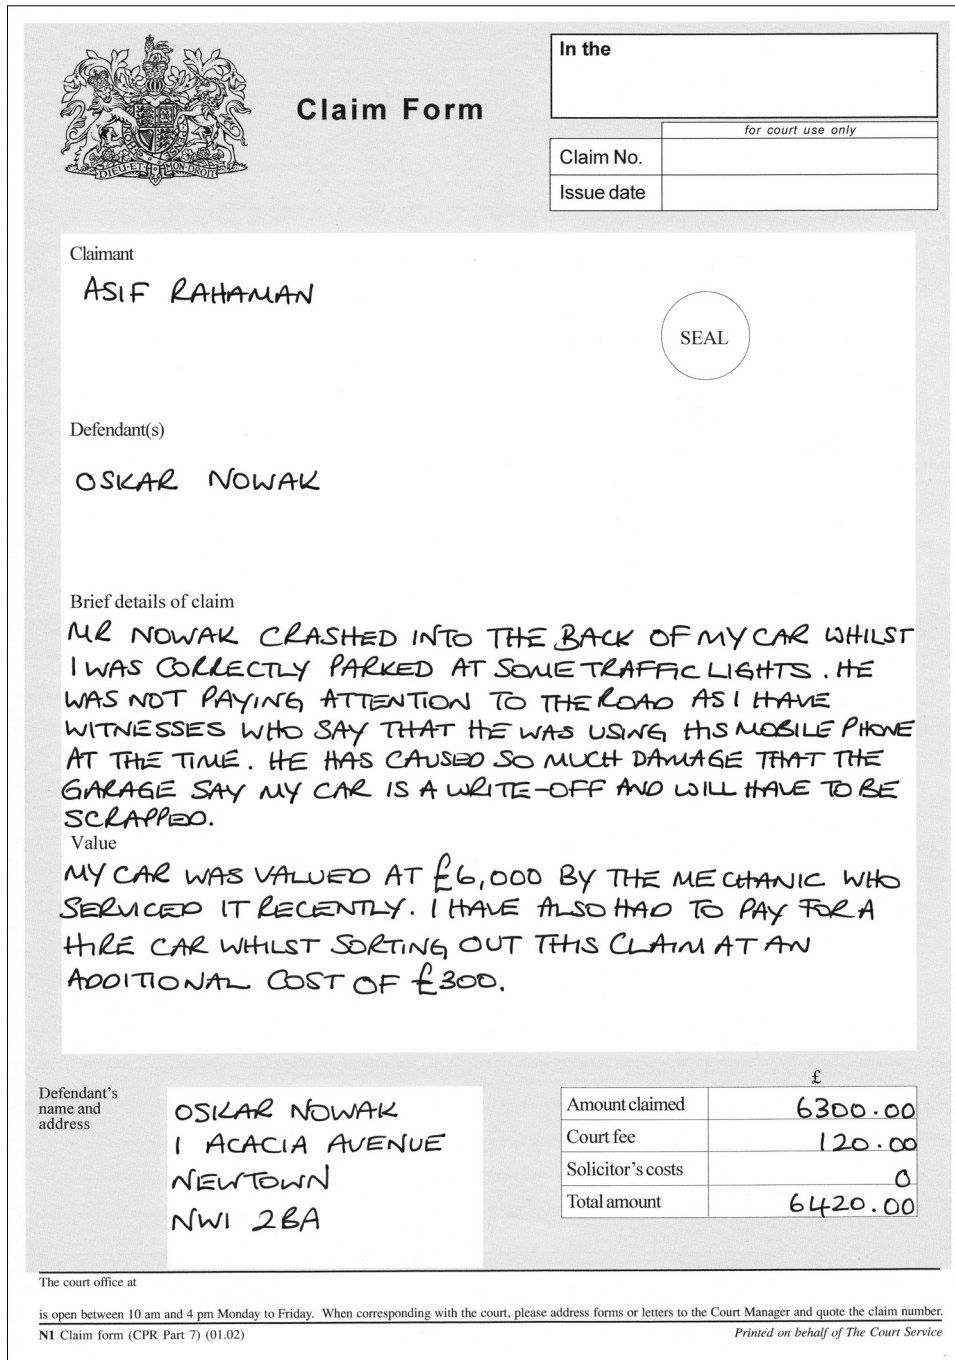 In the
Claim Form
for court use only
Claim No.
Issue date
DIEU·ET·MON·DROIT
Claimant
ASIF RAHAMAN
SEAL
Defendant(s)
OSKAR NOWAK
Brief details of claim
MR NOWAK CRASHED INTO THE BACK OF MY CAR WHILST
I WAS CORRECTLY PARKED AT SOME TRAFFIC LIGHTS. HE
WAS NOT PAYING ATTENTION TO THE ROAD AS I HAVE
WITNESSES WHO SAY THAT HE WAS USING HIS MOBILE PHONE
AT THE TIME. HE HAS CAUSED SO MUCH DAMAGE THAT THE
GARAGE SAY MY CAR IS A WRITE-OFF AND WILL HAVE TO BE
SCRAPPED.
Value
MY CAR WAS VALUED AT £6,000 BY THE MECHANIC WHO
SERVICED IT RECENTLY. I HAVE ALSO HAD TO PAY FOR A
HIRE CAR WHILST SORTING OUT THIS CLAIM AT AN
ADDITIONAL COST OF £300.
Defendant's
name and
address
OSKAR NOWAK
1 ACACIA AVENUE
NEWTOWN
NW1 2BA
£
Amount claimed 6300.00
Court fee 120.00
Solicitor's costs 0
Total amount 6420.00
The court office at
is open between 10 am and 4 pm Monday to Friday. When corresponding with the court, please address forms or letters to the Court Manager and quote the claim number.
N1 Claim form (CPR Part 7) (01.02) Printed on behalf of The Court Service